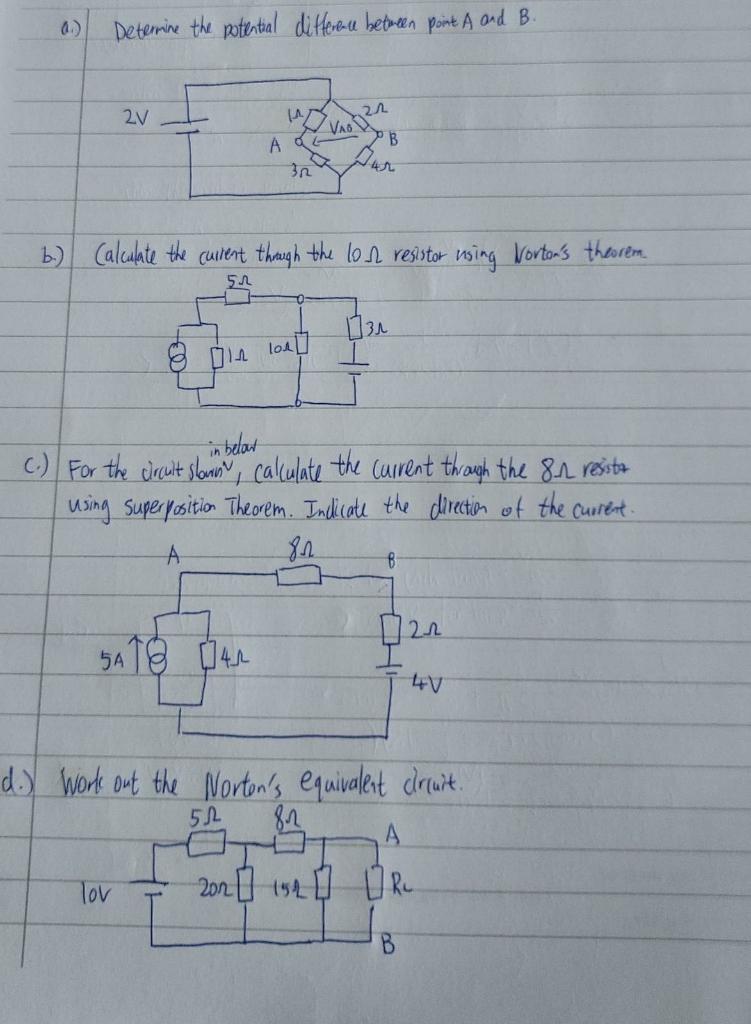 a.) Determine the potential difference between point A and B.
2V
1Ω
2Ω
VAB
A
B
3Ω
4Ω
b.) Calculate the current through the 10 Ω resistor using Norton's theorem
5Ω
3Ω
1Ω
10Ω
in below
c.) For the circuit shown, calculate the current through the 8Ω resistor
using Superposition Theorem. Indicate the direction of the current.
A
8Ω
B
2Ω
5A
4Ω
4V
d.) Work out the Norton's equivalent circuit.
5Ω
8Ω
A
10V
20Ω
15Ω
RL
B